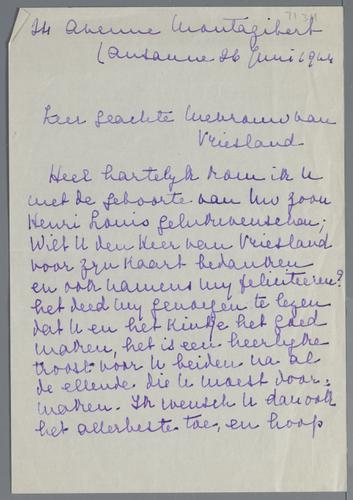 24 Avenue Montagibert
Lausanne 26 Juni 1944
Zeer geachte Mevrouw van
Vriesland
Heel hartelyk kom ik U
met de geboorte van Uw zoon
Henri Louis gelukwenschen;
Wilt U den Heer van Vriesland
voor zyn kaart bedanken
en ook namens my feliciteeren?
het deed my genoegen te lezen
dat U en het kindje het goed
maken, het is een heerlyke
troost voor U beiden na al
de ellende die U moest door-
maken. Ik wensch U dan ook
het allerbeste toe, en hoop